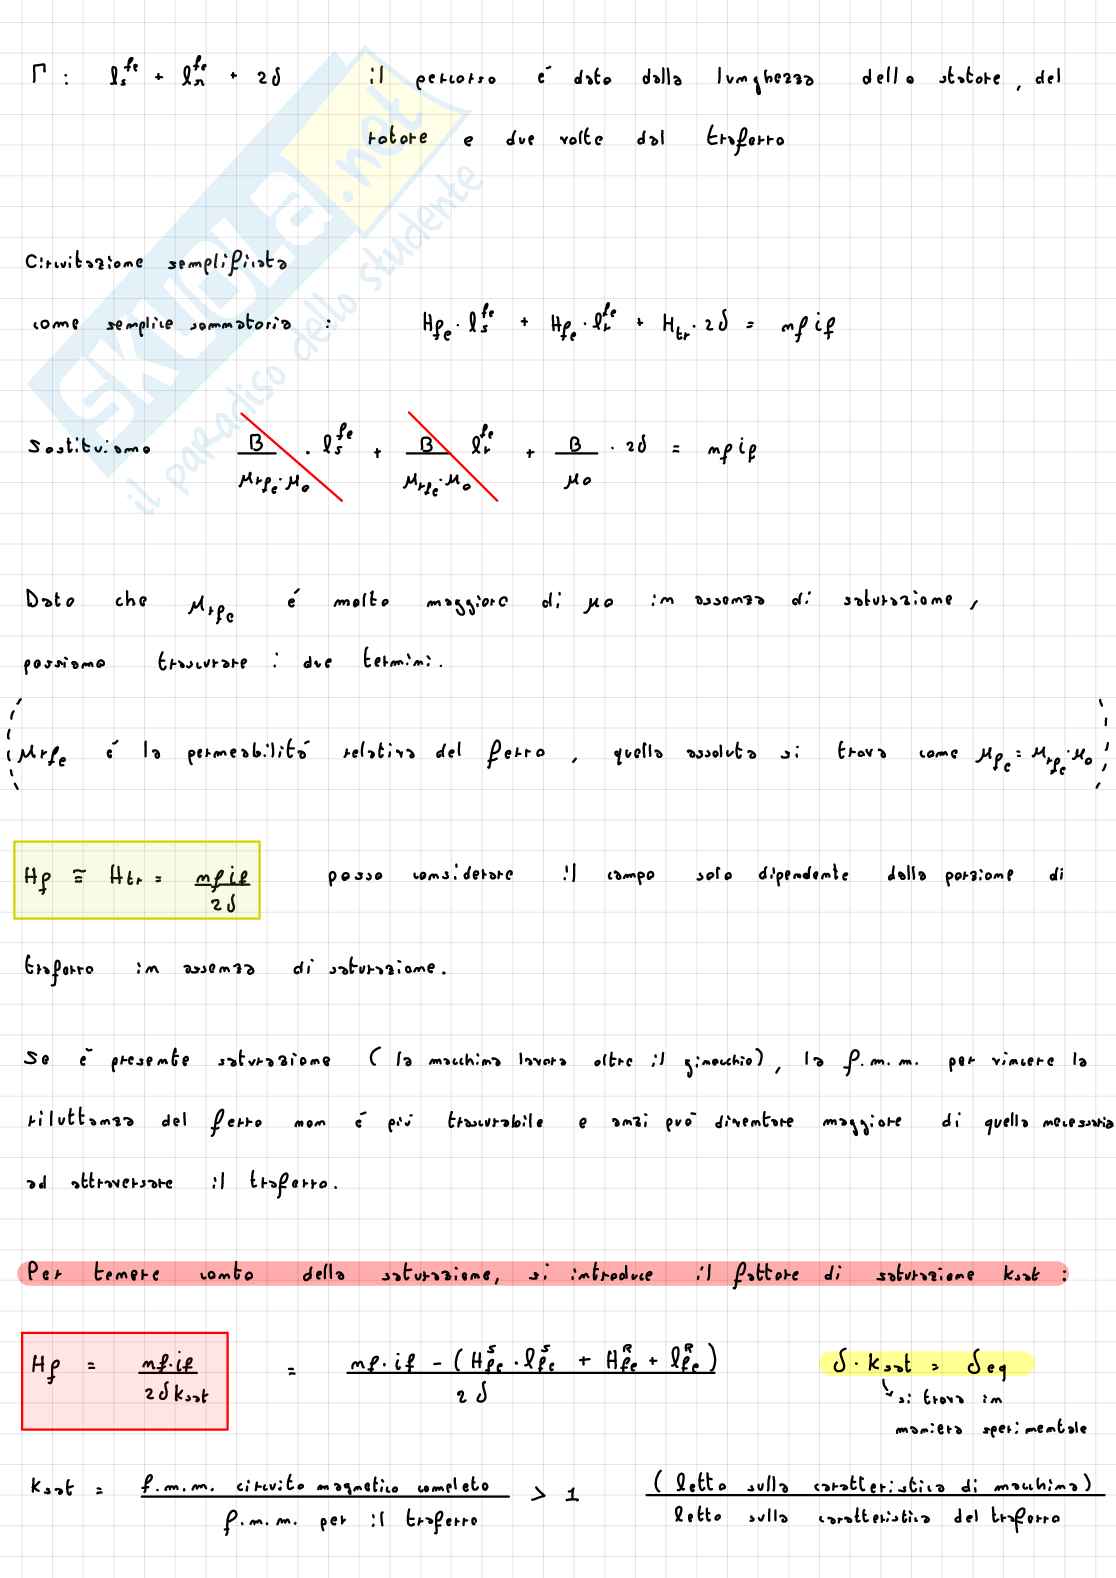 Γ : l_s^fe + l_r^fe + 2δ il percorso è dato dalla lunghezza dello statore, del
rotore e due volte dal traferro
Circuitazione semplificata
come semplice sommatoria : H_fe · l_s^fe + H_fe · l_r^fe + H_tr · 2δ = nf if
Sostituiamo B/(μ_rfe · μ_0) · l_s^fe + B/(μ_rfe · μ_0) l_r^fe + B/μ_0 · 2δ = nf if
Dato che μ_rfe é molto maggiore di μ_0 in assenza di saturazione,
possiamo trascurare i due termini.
(μ_rfe é la permeabilitá relativa del ferro, quella assoluta si trova come μ_fe = μ_rfe · μ_0)
Hf ≅ Htr = nf if / 2δ posso considerare il campo solo dipendente dalla porzione di
traferro in assenza di saturazione.
Se è presente saturazione (la macchina lavora oltre il ginocchio), la f.m.m. per vincere la
riluttanza del ferro non é piú trascurabile e anzi puó diventare maggiore di quella necessaria
ad attraversare il traferro.
Per tenere conto della saturazione, si introduce il fattore di saturazione ksat :
Hf = nf · if / 2δ ksat = nf · if - (H_fe^S · l_fe^S + H_fe^R + l_fe^R) / 2δ δ · ksat = δeq
si trova in
maniera sperimentale
ksat = f.m.m. circuito magnetico completo / f.m.m. per il traferro > 1 (letto sulla caratteristica di macchina) / letto sulla caratteristica del traferro
SKUOLA.net
il paradiso dello studente